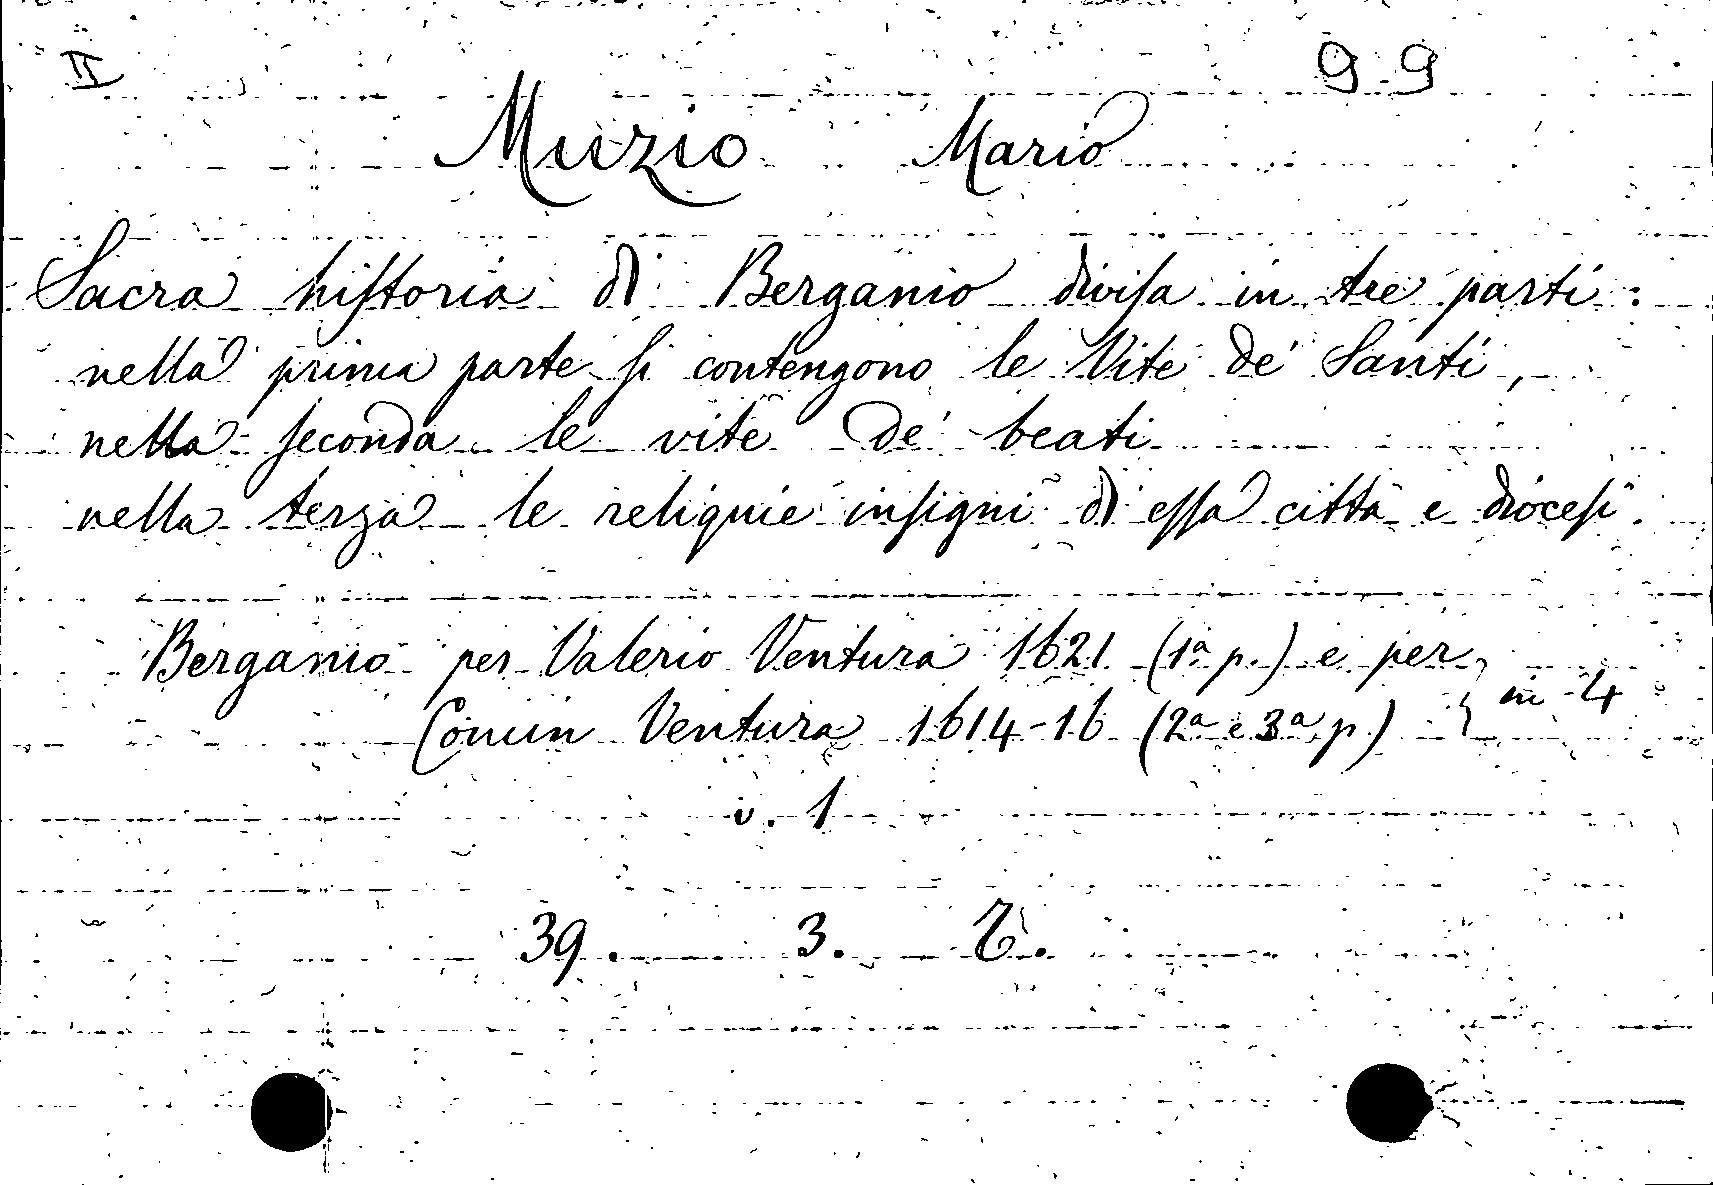 II 9.9
Muzio Mario
Sacra hiſtoria di Bergamo diviſa in tre parti:
nella prima parte ſi contengono le Vite de' Santi,
nella ſeconda le vite de' beati
nella terza le reliquie inſigni di eſſa città e dioceſi.
Bergamo per Valerio Ventura 1621 (1ª p.) e per
Comin Ventura 1614-16 (2ª e 3ª p) } in 4
v. 1
39. 3.